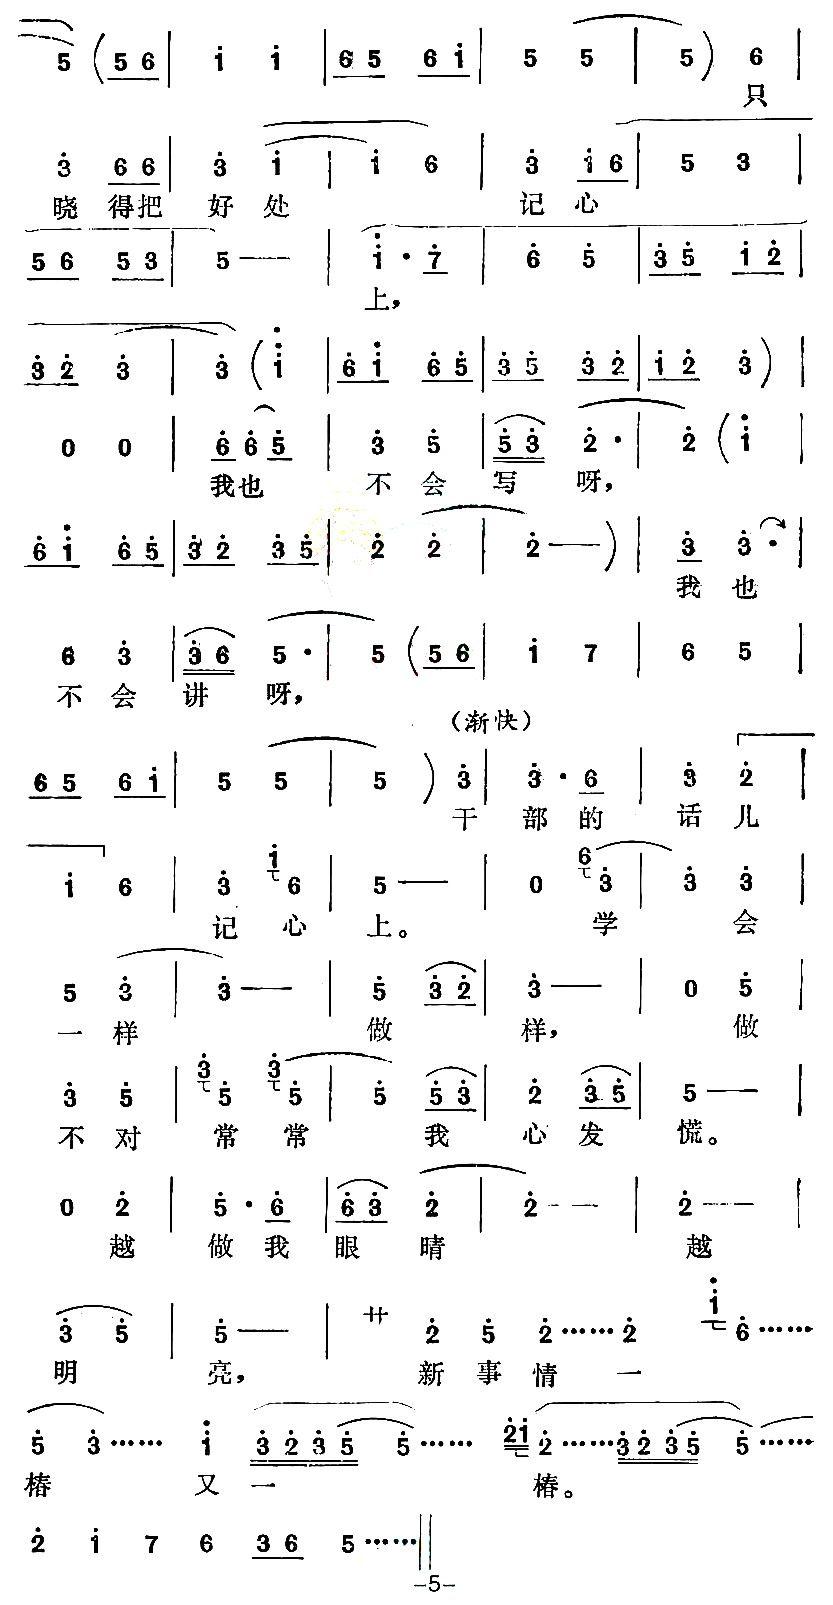 5 (5 6 | i i | 6 5 6 i | 5 5 | 5) 6 |
只
3 6 6 | 3 i | i 6 | 3 i 6 | 5 3 |
晓 得把 好 处 记 心
5 6 5 3 | 5 — | i · 7 | 6 5 | 3 5 1 2 |
上,
3 2 3 | 3 (i | 6 i 6 5 | 3 5 3 2 | 1 2 3) |
0 0 | 6 6 5 | 3 5 | 5 3 2 · | 2 (i |
我也 不 会 写 呀,
6 i 6 5 | 3 2 3 5 | 2 2 | 2 —) | 3 3 · |
我 也
6 3 | 3 6 5 · | 5 (5 6 | i 7 | 6 5 |
不 会 讲 呀,
(渐快)
6 5 6 i | 5 5 | 5) 3 | 3 · 6 | 3 2 |
干 部 的 话 儿
i 6 | 3 i 6 | 5 — | 0 6 3 | 3 3 |
记 心 上。 学 会
5 3 | 3 — | 5 3 2 | 3 — | 0 5 |
一 样 做 样, 做
3 5 | 3 5 3 5 | 5 5 3 | 2 3 5 | 5 — |
不 对 常 常 我 心 发 慌。
0 2 | 5 · 6 | 6 3 2 | 2 — — | 2 — — |
越 做 我 眼 睛 越
3 5 | 5 — | 艹 2 5 2 …… 2 i 6 ……
明 亮, 新 事 情 一
5 3 …… i 3 2 3 5 5 …… 2 i 2 …… 3 2 3 5 5 ……
椿 又 一 椿。
2 i 7 6 3 6 5 …… ‖
-5-